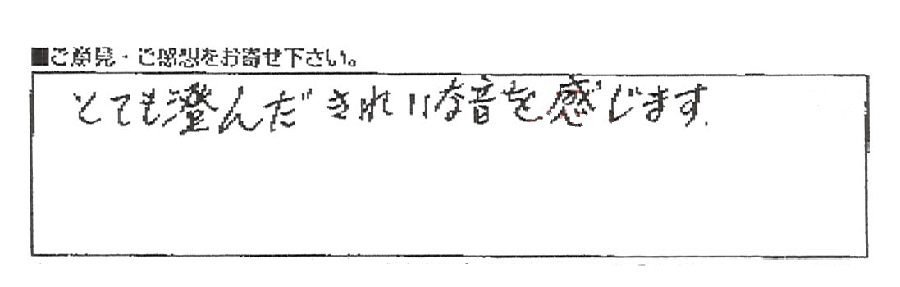 ■ご意見・ご感想をお寄せ下さい。
とても澄んだきれいな音を感じます.